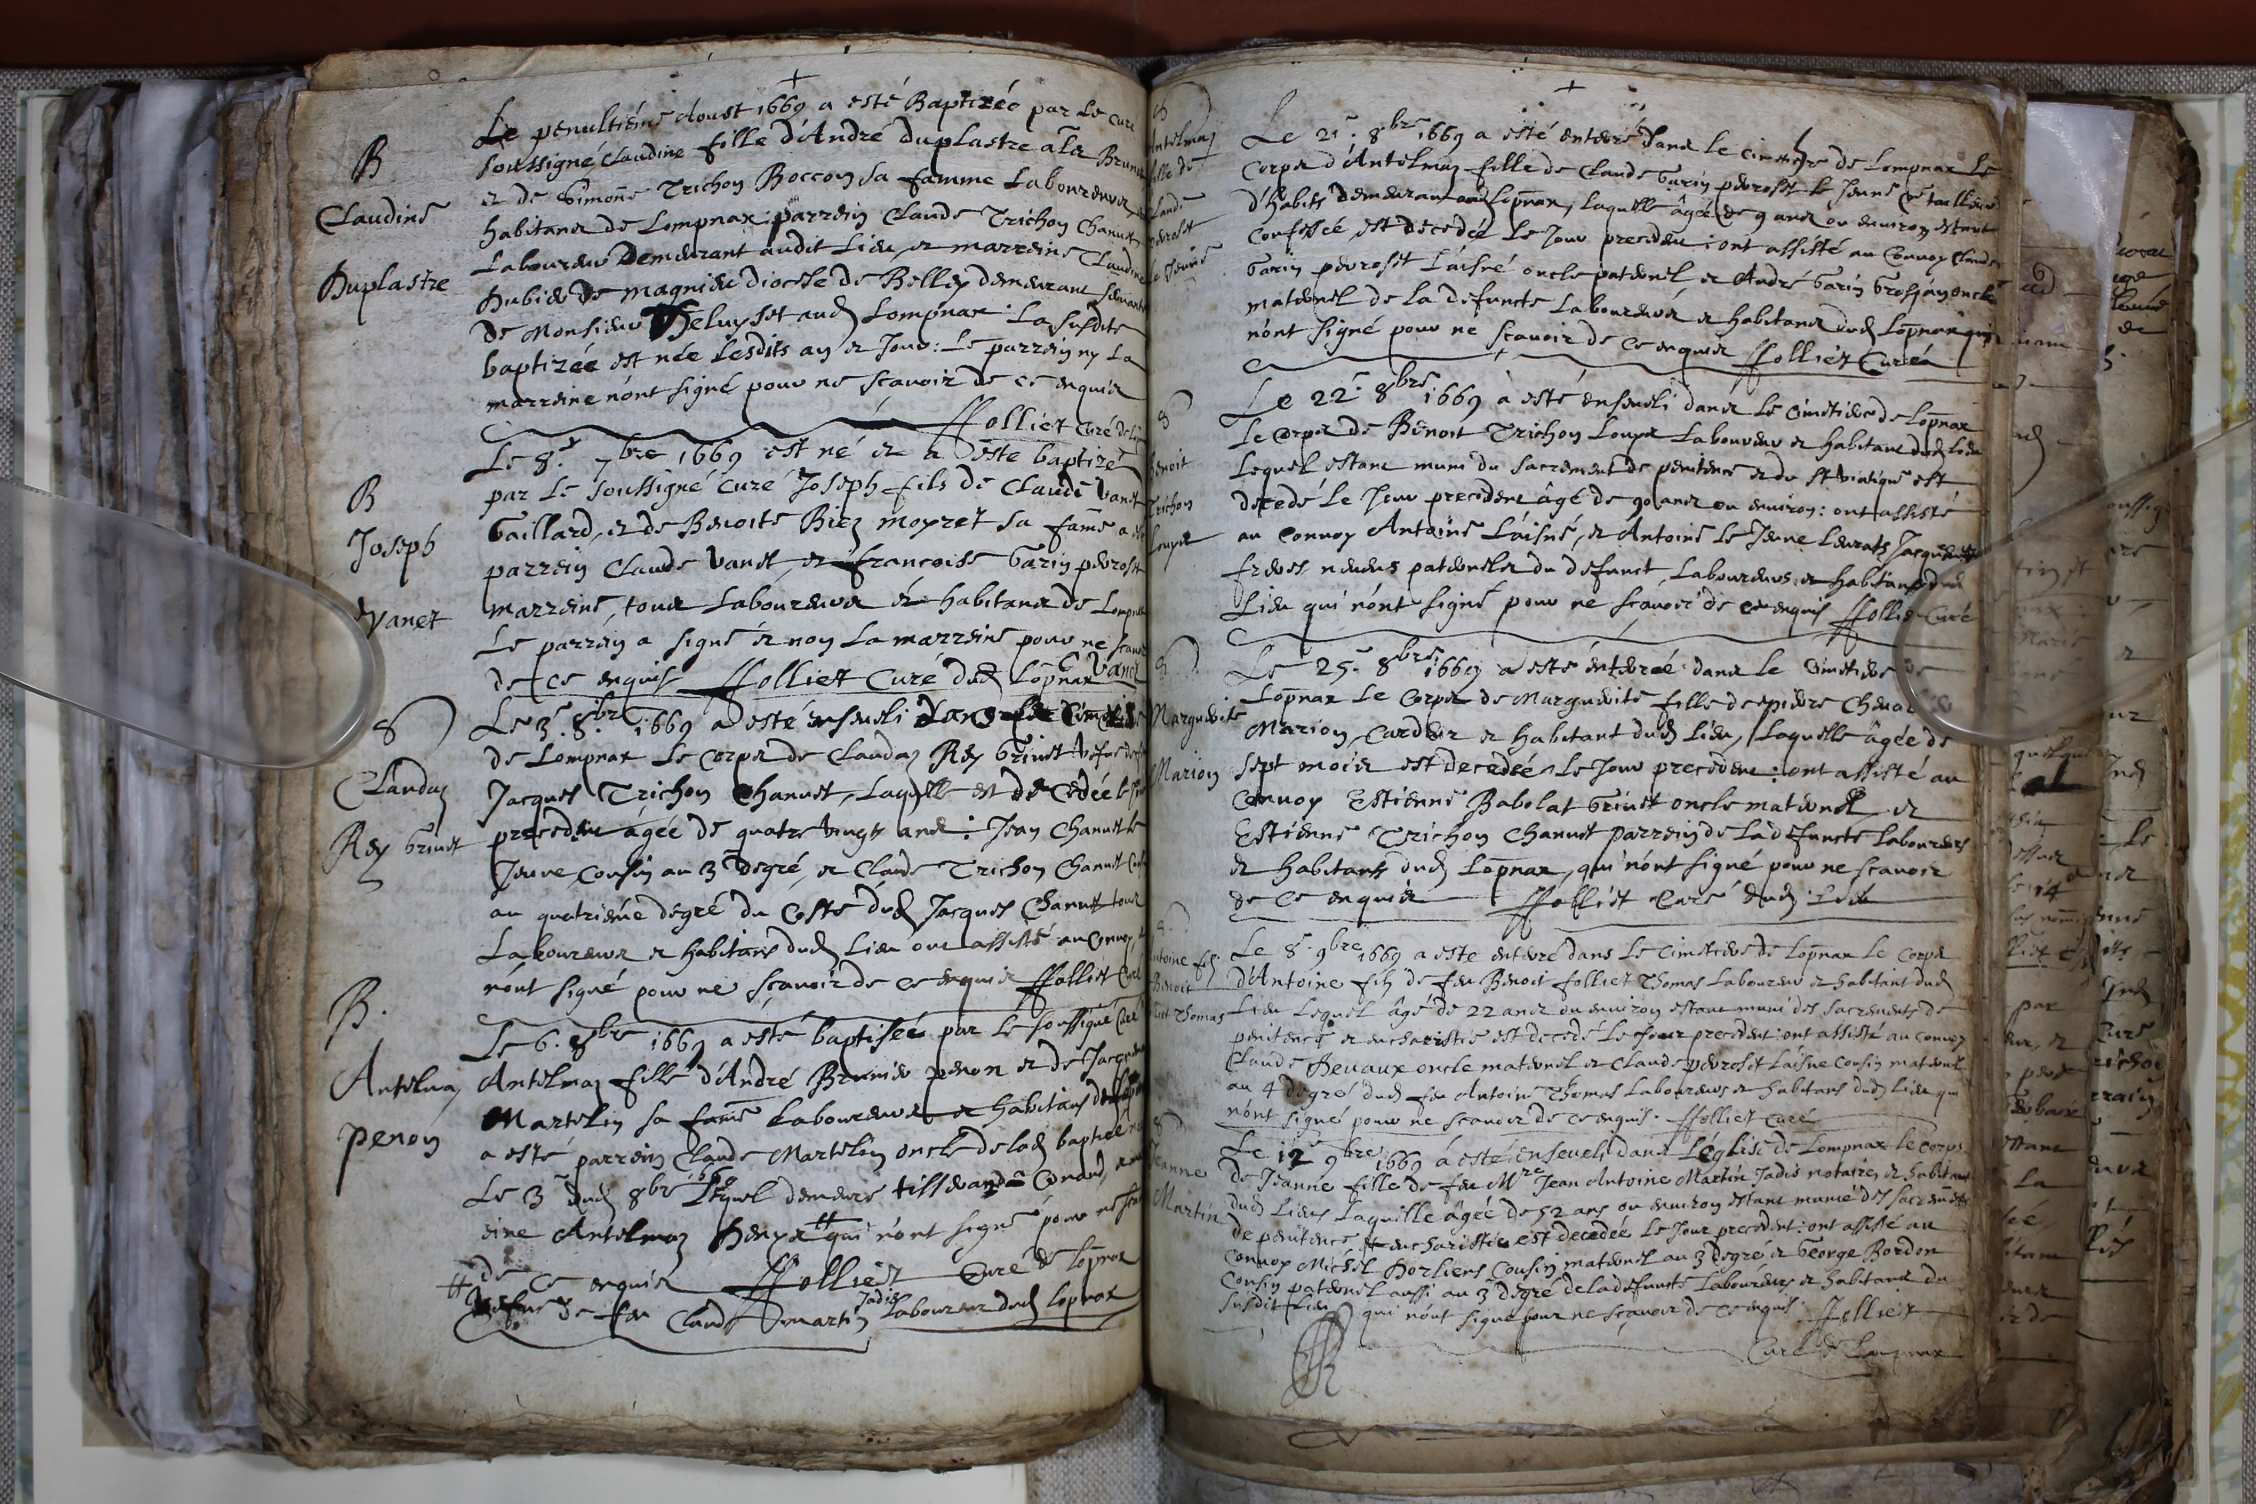 B
Claudine
Duplastre
Le penultiéme doust 1669 a esté Baptizée par le curé
soussigné, Claudine fille d'André Duplastre
et de Simone Trichon Boccon sa famme Laboureurs,
habitans de Lompnax: parrein Claude Trichon Chanut
Laboureur Demeurant audit Lieu, et marreine Claudine
Dubieu de magnieu diocese de Belley demeurant servante
de Monsieur Heluyset aud Lompnax: La susdite
baptizée est née lesdits an et Jour: Le parrein ny La
marreine n'ont signé pour ne scavoir de ce enquis
ffolliet curé
B
Joseph
Vanet
Le 8e 7bre 1669 est né et a este baptizé
par Le soussigné curé Joseph fils de Claude Vanet
Gaillard, et de Benoite Biez moyret sa fame a esté
parrein Claude Vanet, et francoise Garin perroset
marreine, tous Laboureurs et habitans de Lompnax
Le parrein a signé et non La marreine pour ne scavoir
de ce enquis ffolliet Curé dud Lopnax C Vanet
S
Claudaz
Rey Grinet
Le 3e 8bre 1669 a esté enseveli dans le Cimetiere
de Lompnax Le Corps de Claudaz Rey Grinet vefve de
Jacques Trichon Chanut, Laquelle est decedée le Jour
precedent âgée de quatre vingts ans: Jean Chanut le
Jeune, Cousin au 3 degré, et Claude Trichon Chanut Cousin
au quatriéme degré du Costé dud Jacques Chanut tous
Laboureurs et habitans dud Lieu ont assisté au Convoy,
n'ont signé pour ne sçavoir de ce enquis ffolliet Curé
B.
Antelmaz
penon
Le 6. 8bre 1669 a esté baptisée par Le soussigné Curé
Antelmaz fille d'André Brunier penon et de Jacqueme
Martelin sa fame Laboureurs et habitans dud
a esté parrein Claude Martelin oncle de lad baptisée née
Le 3 dud 8bre 1669 Lequel demeure tisserand a Conand,
eine Antelmaz Henys tt qui n'ont signé pour ne scavoir
de ce enquis ffolliet Curé de Lopnax
tt Vefve de feu Claude martin Jadis Laboureur dud lopnax
S
Antelmaz
fille de
Claude
perroset
le Jeune
Le 21e. 8bre 1669 a esté enterré dans le cimetiere de Lompnax Le
Corps d'Antelmaz fille de Claude Garin perroset le Jeune tailleur
d'habits demeurant aud Lopnax, laquelle âgée de 9 ans ou environ estant
confessée, est decedée Le Jour precedent: ont assisté au Convoy Claude
Garin perroset L'aisné oncle paternel et André Garin Grosjan oncle
maternel de la defuncte Laboureurs et habitans dud Lopnax qui
n'ont signé pour ne scavoir de ce enquis ffolliet Curé
S
Benoit
Trichon
Loupe
Le 22e 8bre 1669 à esté enseveli dans Le Cimetiere de Lopnax
Le Corps de Benoit Trichon Loupe Laboureur et habitant dud Lieu
Lequel estant muni du sacrement de penitence et du st viatique est
decedé le Jour precedent âgé de 90 ans ou environ: ont assisté
au Convoy Antoine L'aisné, et Antoine le Jeune Leurats Jacquemet
freres neveus paternels du defunct, Laboureurs et habitans dud
Lieu qui n'ont signé pour ne scavoir de ce enquis ffolliet Curé
S
Marguerite
Marion
Le 25e. 8bre 1669 a esté enterée dans le Cimetiere de
Lopnax Le Corps de Marguerite fille de pierre Cheval
Marion Cardeur et habitant dud Lieu, Laquelle âgée de
sept mois est decedée Le Jour precedent: ont assisté au
Convoy Estienne Babolat Grinet oncle maternel et
Estienne Trichon Chanut parrein de La defuncte Laboureurs
et habitants dud Lopnax, qui n'ont signé pour ne scavoir
de ce enquis ffolliet Curé dud Lieu
S
Antoine fils
Benoit
Thomas
Le 8e. 9bre 1669 a este enterré dans Le Cimetiere de Lopnax Le Corps
d'Antoine fils de feu Benoit folliet Thomas Laboureur et habitant dud
Lieu Lequel âgé de 22 ans ou environ estant muni des sacrements de
penitence et eucharistie est decedé Le Jour precedent: ont assisté au convoy
Claude Devaux oncle maternel et Claude perroset Laisne cousin maternel
au 4 degré dud feu Antoine Thomas Laboureurs et habitans dud Lieu qui
n'ont signé pour ne scavoir de ce enquis. ffolliet Curé
S
Jeanne
Martin
Le 12 9bre 1669 à esté enseveli dans L'église de Lompnax le corps
de Jeanne fille de feu Mre Jean Antoine Martin Jadis notaire, et habitant
dud Lieu, Laquelle âgée de 52 ans ou environ estant munie des sacrements
de penitence et eucharistie est decedée Le Jour precedent: ont assisté au
convoy Michel Dorliens Cousin maternel au 3 degré et George Bordon
Cousin paternel aussi au 3 degré de la defuncte Laboureurs et habitans du
susdit Lieu qui n'ont signé pour ne sçavoir de ce enquis. ffolliet
Curé de Lompnax